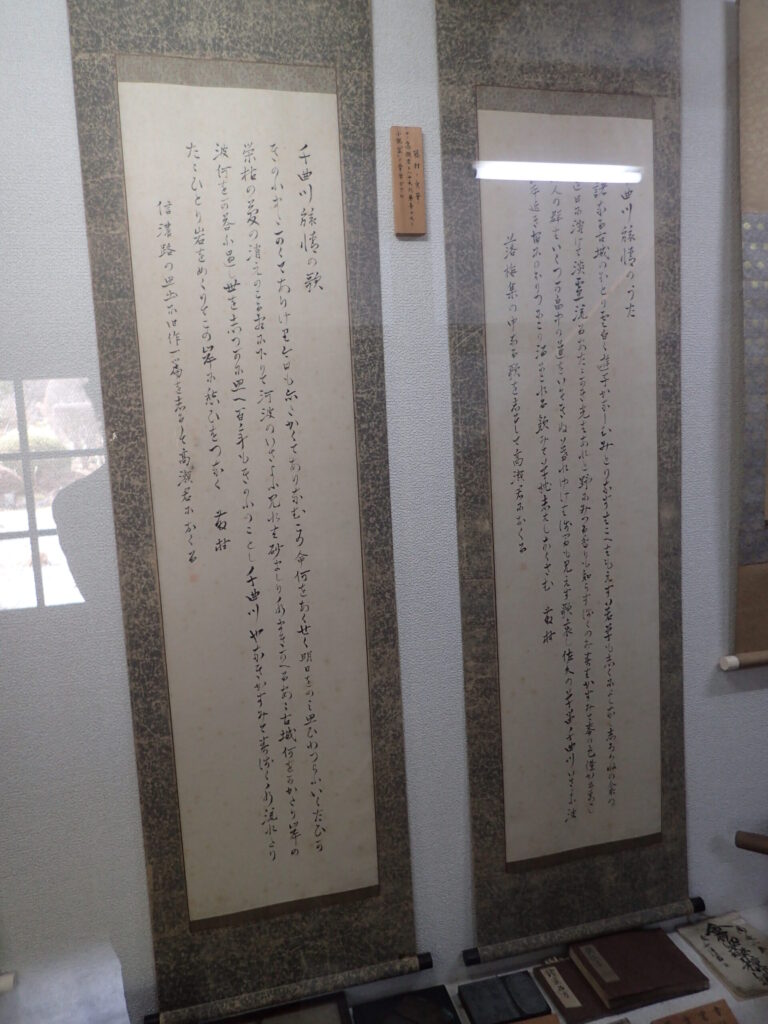 曲川旅情のうた
諸なる古城のほとり雲白く遊子かなしむみとりなすはこへはもえす若草も志くによしなし志ろかねの衾の
日に溶けて淡雪流るあたゝかき光はあれと野にみつる香りも知らす浅くのみ春はかすみて麦の色僅かに青し
人の群はいくつか畠中の道をいそきぬ暮れゆけは浅間も見えす歌哀し佐久の草笛千曲川いさよふ波
岸近き宿にのほりつにこり酒にこれる飲みて草枕志はしなくさむ 藤村
落梅集の中より歌を志るして高瀬君におくる
千曲川旅情の歌
きのふまたかくてありけり今日も亦かくてありなむこの命何をあくせく明日をのみ思ひわつらふいくたひか
栄枯の夢の消えのこる谷に下りて河波のいさよふ見れは砂ましり水まきかへるあゝ古城何をかかたり岸の
波何をか答ふ過し世を志つかに思へ百年もきのふのことし千曲川やなきかすみて春浅く水流れたり
たゝひとり岩をめくりてこの岸に愁ひをつなく 藤村
信濃路の思出に旧作一篇を志るして高瀬君におくる